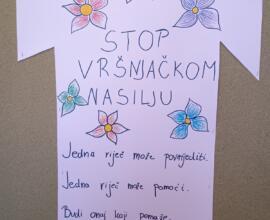 STOP
VRŠNJAČKOM
NASILJU
Jedna riječ može povrijediti.
Jedna riječ može pomoći.
Budi onaj koji pomaže.